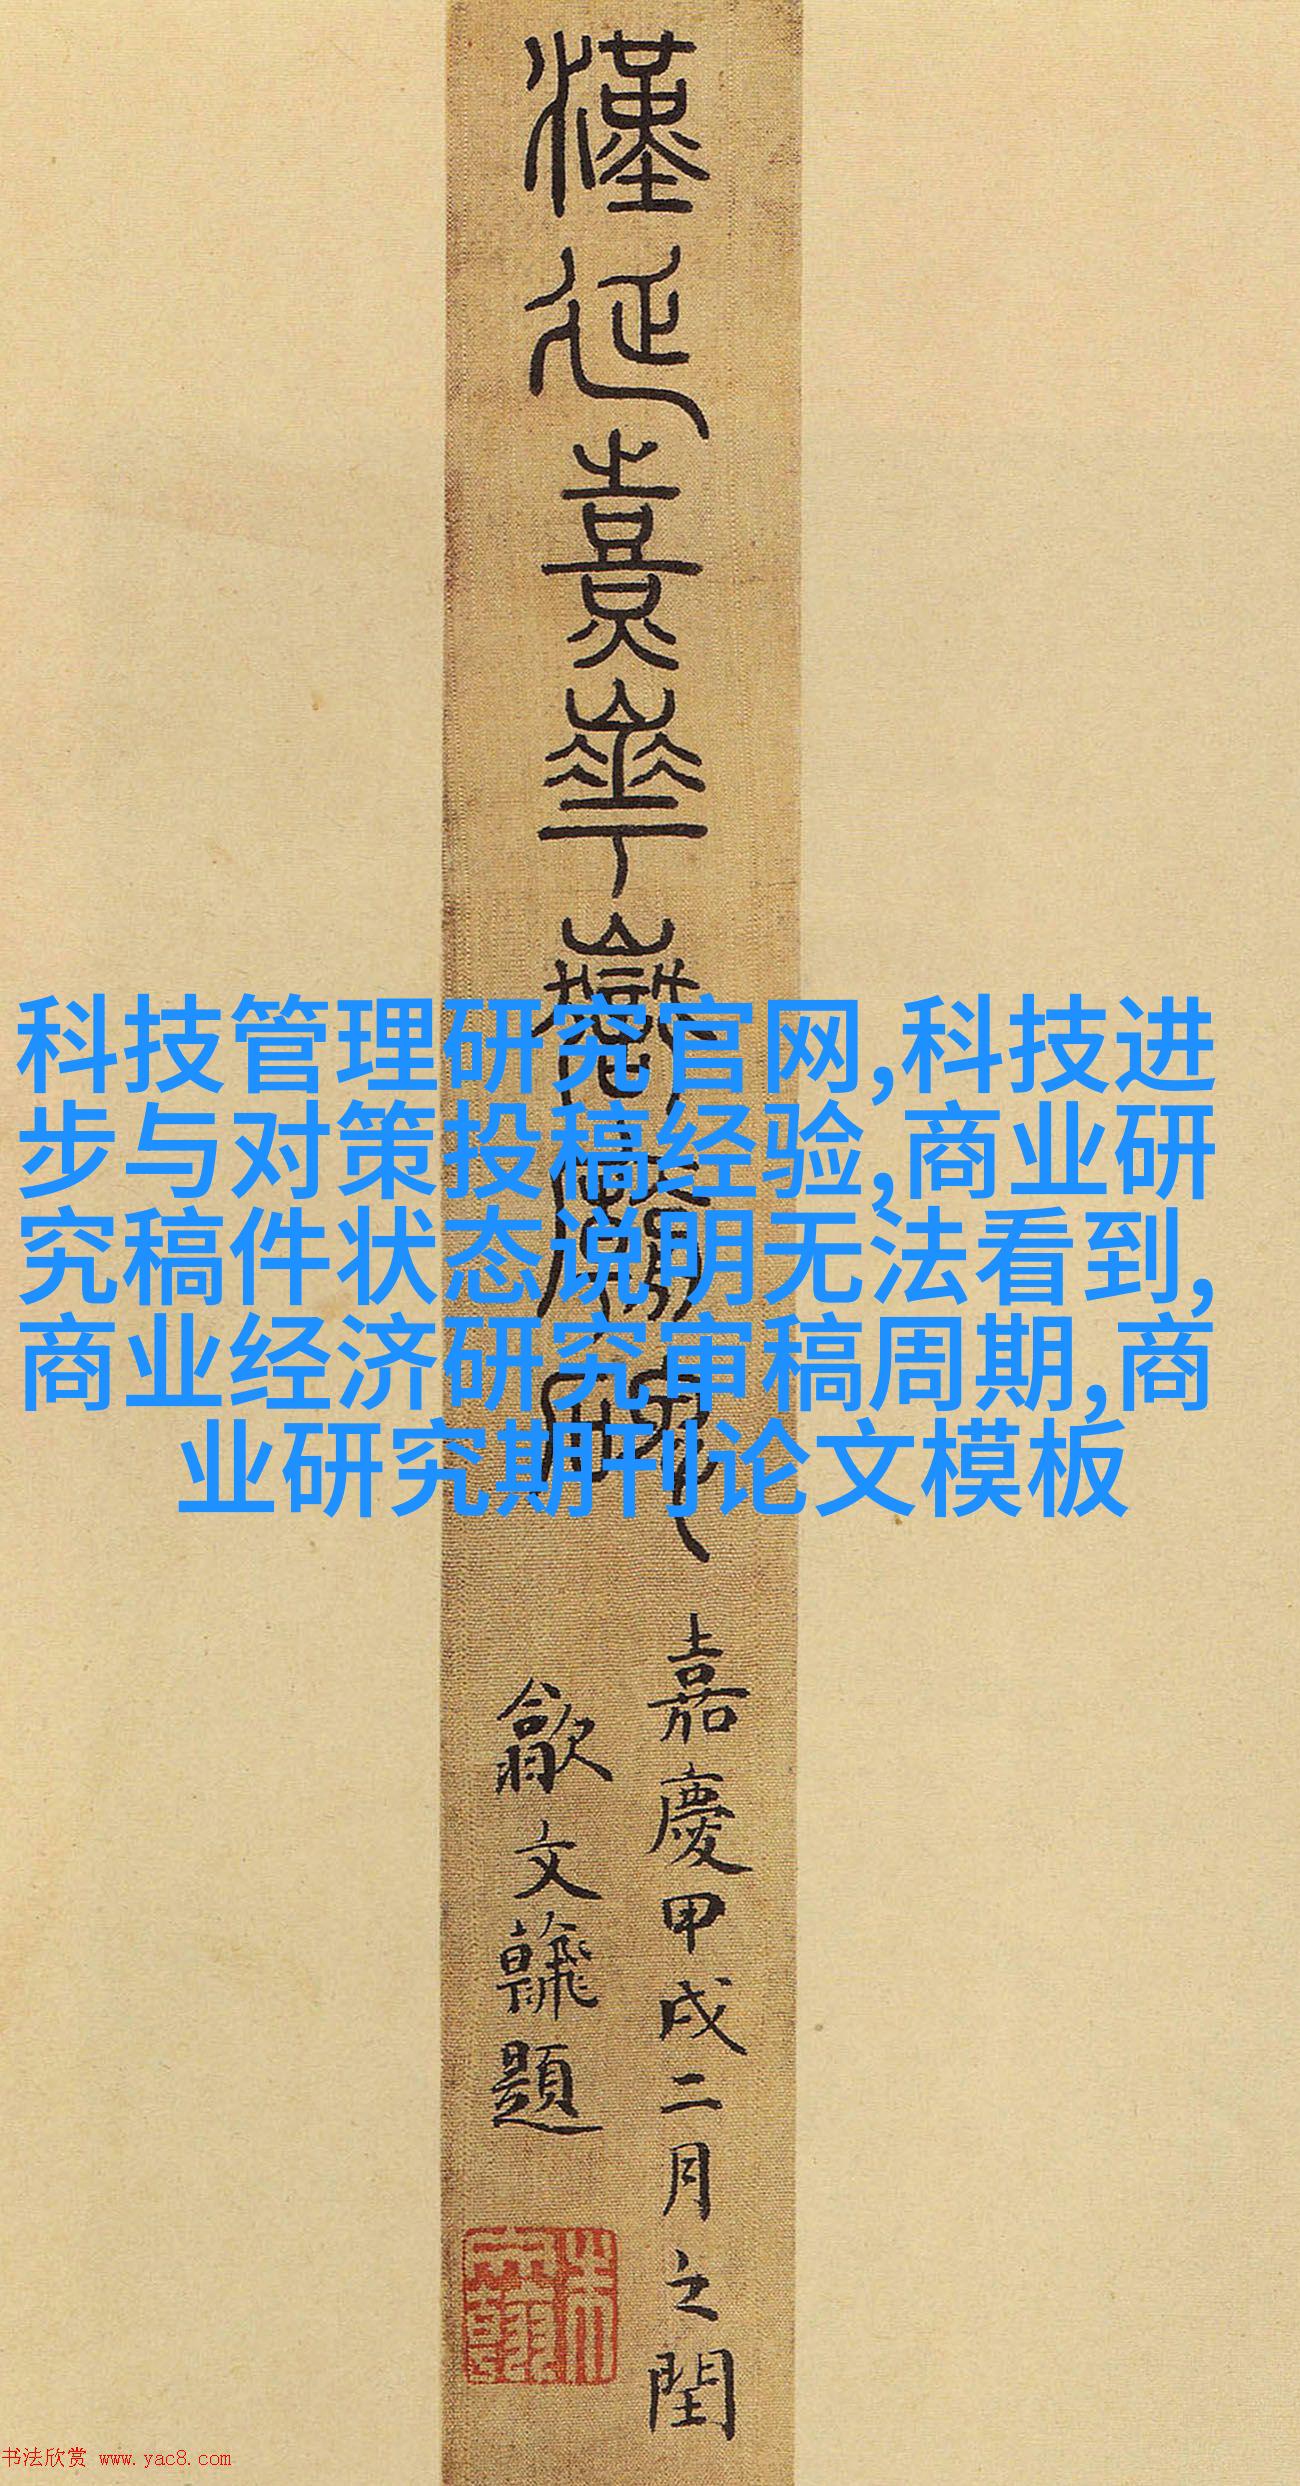 漢延熹華嶽
科技管理研究官网,科技进
步与对策投稿经验,商业研
究稿件状态说明无法看到,
商业经济研究审稿周期,商
业研究期刊论文模板
嘉慶甲戌二月之閏
歙文題
书法欣赏 www.yac8.com